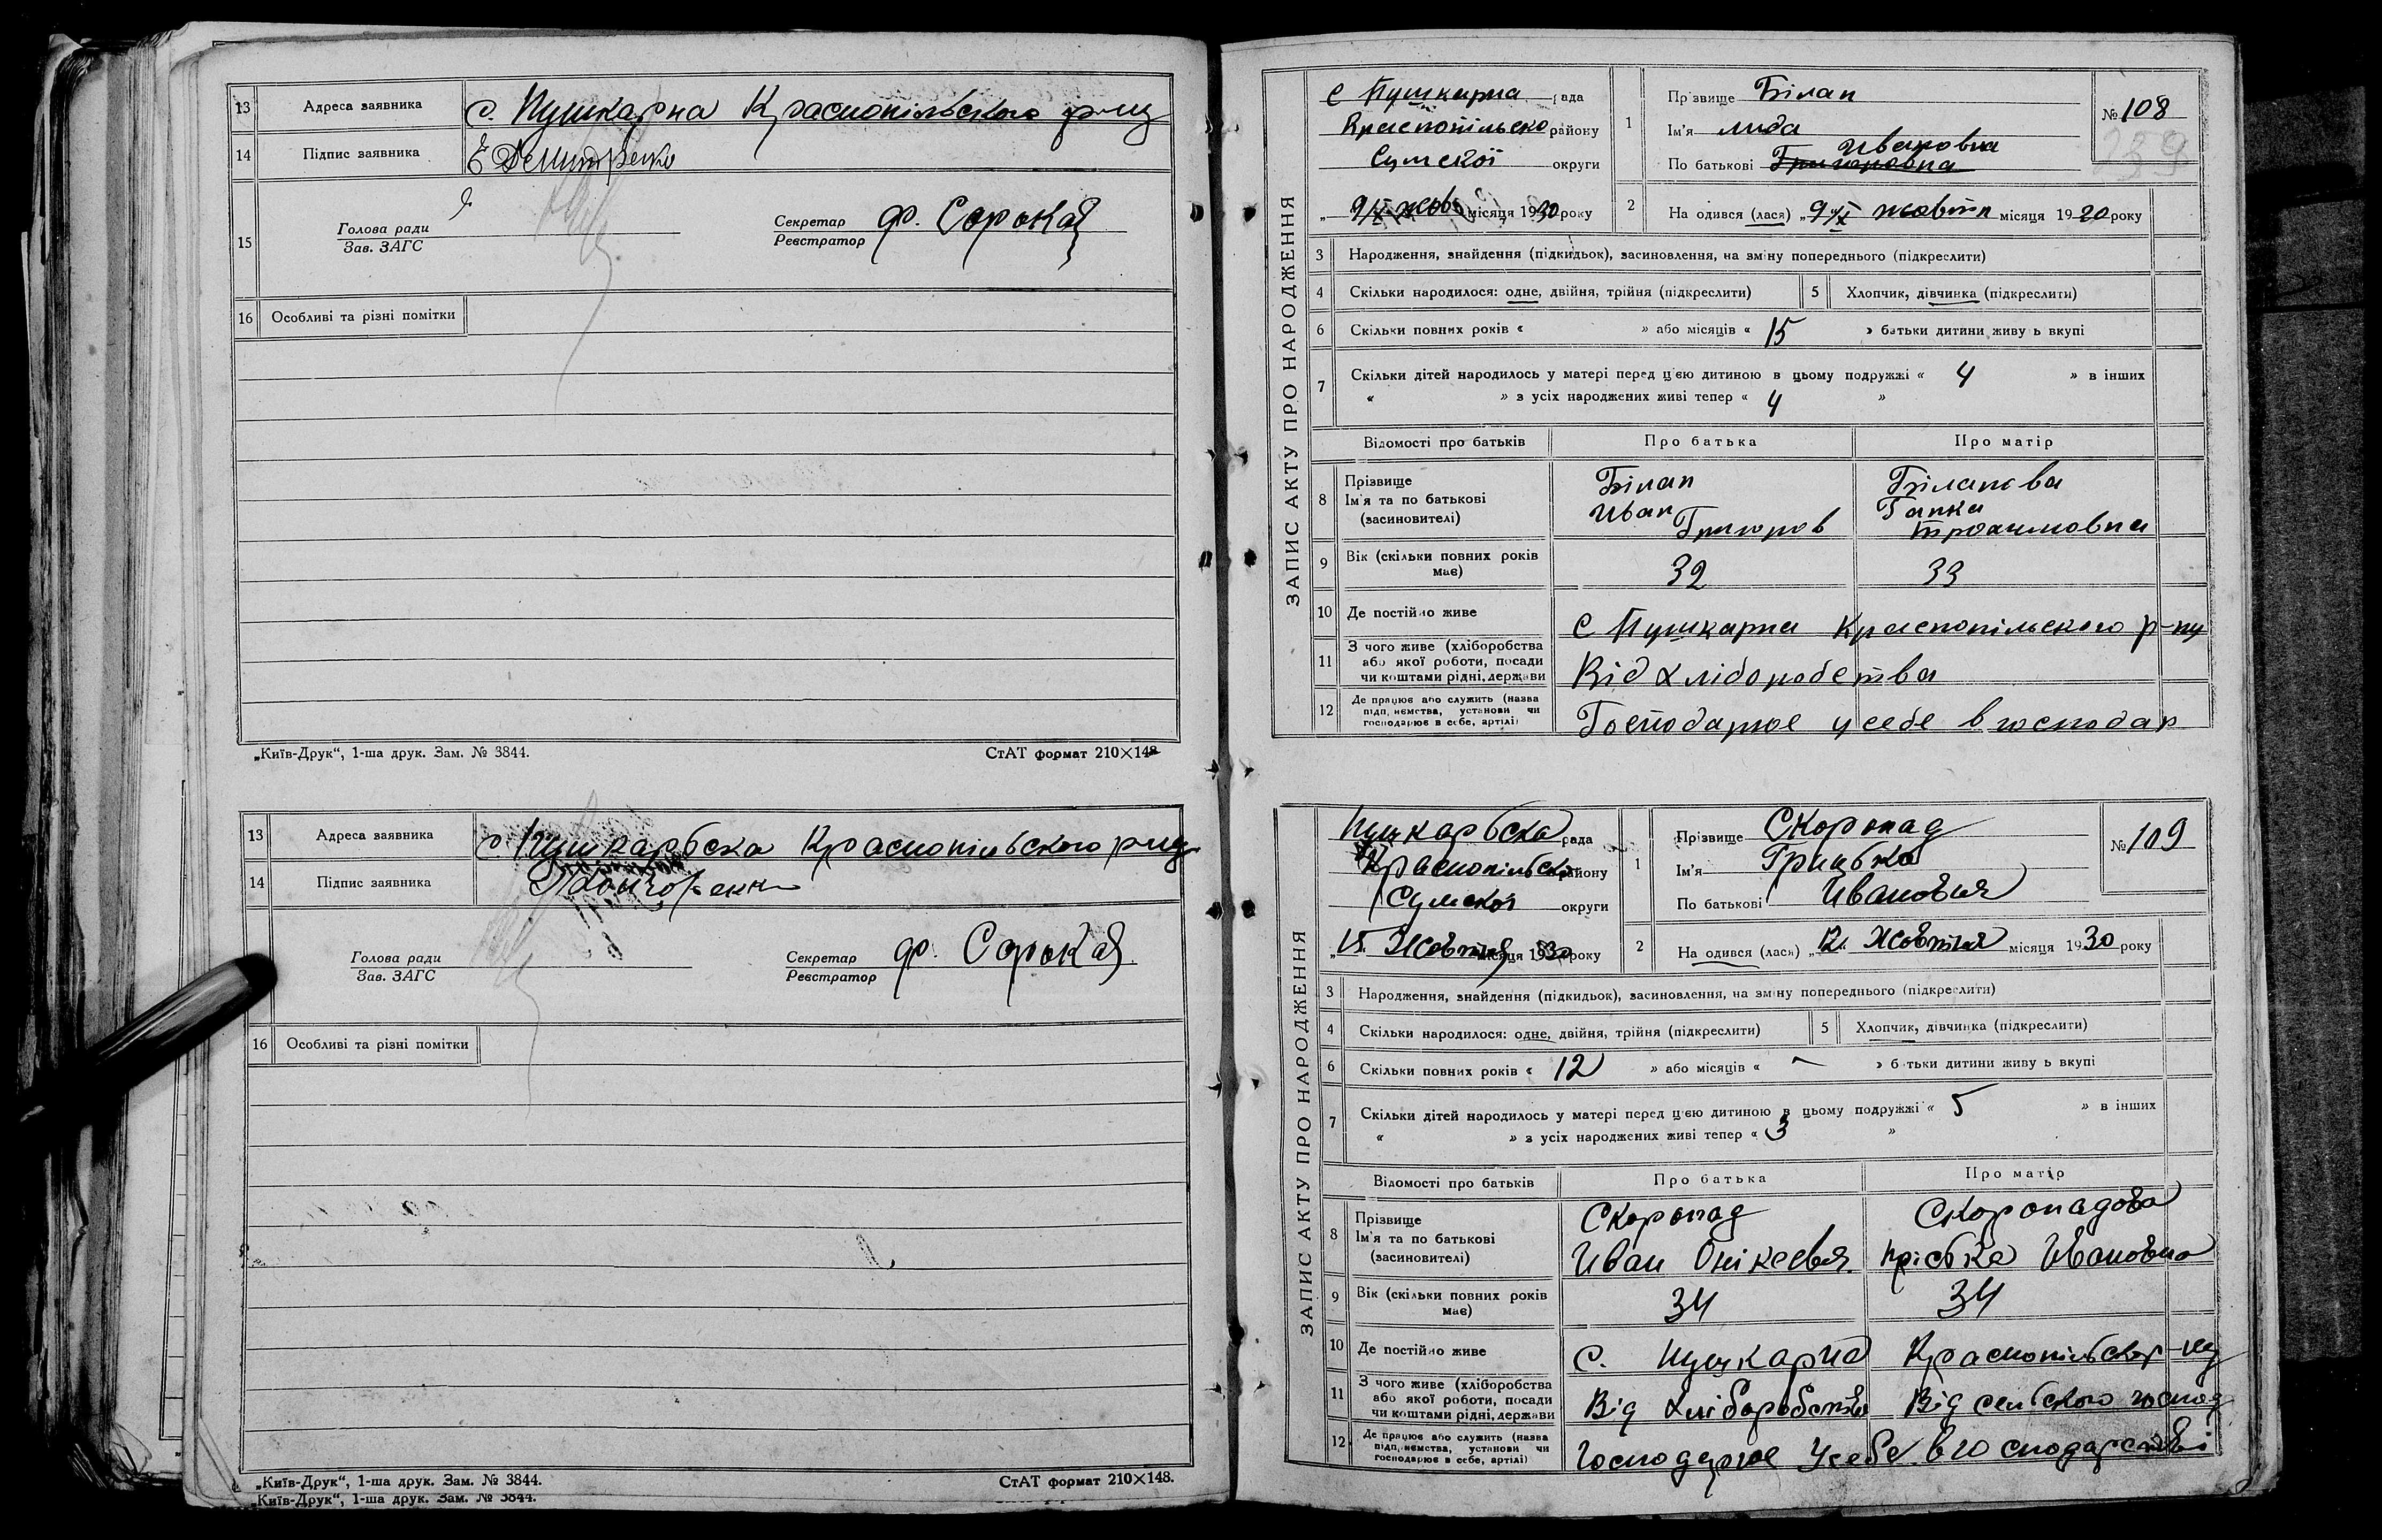 13 Адреса заявника с. Пушкарна Краснопільського р-ну
14 Підпис заявника
15 Голова ради
Зав. ЗАГС
Секретар
Реєстратор
Ф. Сорока
16 Особливі та різні помітки
„Київ-Друк“, 1-ша друк. Зам. № 3844.
СтАТ формат 210×148
13 Адреса заявника с. Пушкарбска Краснопільського р-ну
14 Підпис заявника
15 Голова ради
Зав. ЗАГС
Секретар
Реєстратор
Ф. Сорока
16 Особливі та різні помітки
„Київ-Друк“, 1-ша друк. Зам. № 3844.
СтАТ формат 210×148.
„Київ-Друк“, 1-ша друк. Зам. № 3844.
ЗАПИС АКТУ ПРО НАРОДЖЕННЯ
с Пушкарна рада
Краспопільско району
Сумскої округи
9/X жовт місяця 1930 року
1 Прізвище Білан
Ім'я Лида
Ивановна
По батькові Григоровна
№ 108
259
2 На одився (лася) „9 X жовтн місяця 19 20 року
3 Народження, знайдення (підкидьок), засиновлення, на зміну попереднього (підкреслити)
4 Скільки народилося: одне, двійня, трійня (підкреслити) 5 Хлопчик, дівчинка (підкреслити)
6 Скільки повних років « » або місяців « 15 » батьки дитини живу ь вкупі
7 Скільки дітей народилось у матері перед цією дитиною в цьому подружжі « 4 » в інших
« » з усіх народжених живі тепер « 4 »
Відомості про батьків Про батька Про матір
8 Прізвище Білан Біланова
Ім'я та по батькові Иван Гапка
(засиновителі) Григоров Трохимовна
9 Вік (скільки повних років має) 32 33
10 Де постійно живе С Пушкарна Краспопільского р-ну
11 З чого живе (хліборобства
або якої роботи, посади
чи коштами рідні, держави Від Хліборобства
12 Де працює або служить (назва
підп, иємства, установи чи
господарює в себе, артілі) Господарює у себе в господар
ЗАПИС АКТУ ПРО НАРОДЖЕННЯ
Пушкарбска рада
Краснопільско району
Сумскої округи
„15 Жовтня місяця 1930 року
1 Прізвище Скоропад
Ім'я Грицько
По батькові Ивановия
№ 109
2 На одився (лася) „12 Жовтня місяця 19 30 року
3 Народження, знайдення (підкидьок), засиновлення, на зміну попереднього (підкреслити)
4 Скільки народилося: одне, двійня, трійня (підкреслити) 5 Хлопчик, дівчинка (підкреслити)
6 Скільки повних років « 12 » або місяців « — » б тьки дитини живу ь вкупі
7 Скільки дітей народилось у матері перед цією дитиною в цьому подружжі « 5 » в інших
« » з усіх народжених живі тепер « 3 »
Відомості про батьків Про батька Про матір
8 Прізвище Скоропад Скоропадова
Ім'я та по батькові Иван Онікеевия Прісбка Ивановна
(засиновителі)
9 Вік (скільки повних років має) 34 34
10 Де постійно живе С. Пушкарна Краснопільског р-ну
11 З чого живе (хліборобства
або якої роботи, посади
чи коштами рідні, держави Від Хліборобства Від селбского господ
12 Де працює або служить (назва
підп, иємства, установи чи
господарює в себе, артілі) Господарює У себе в господарстві